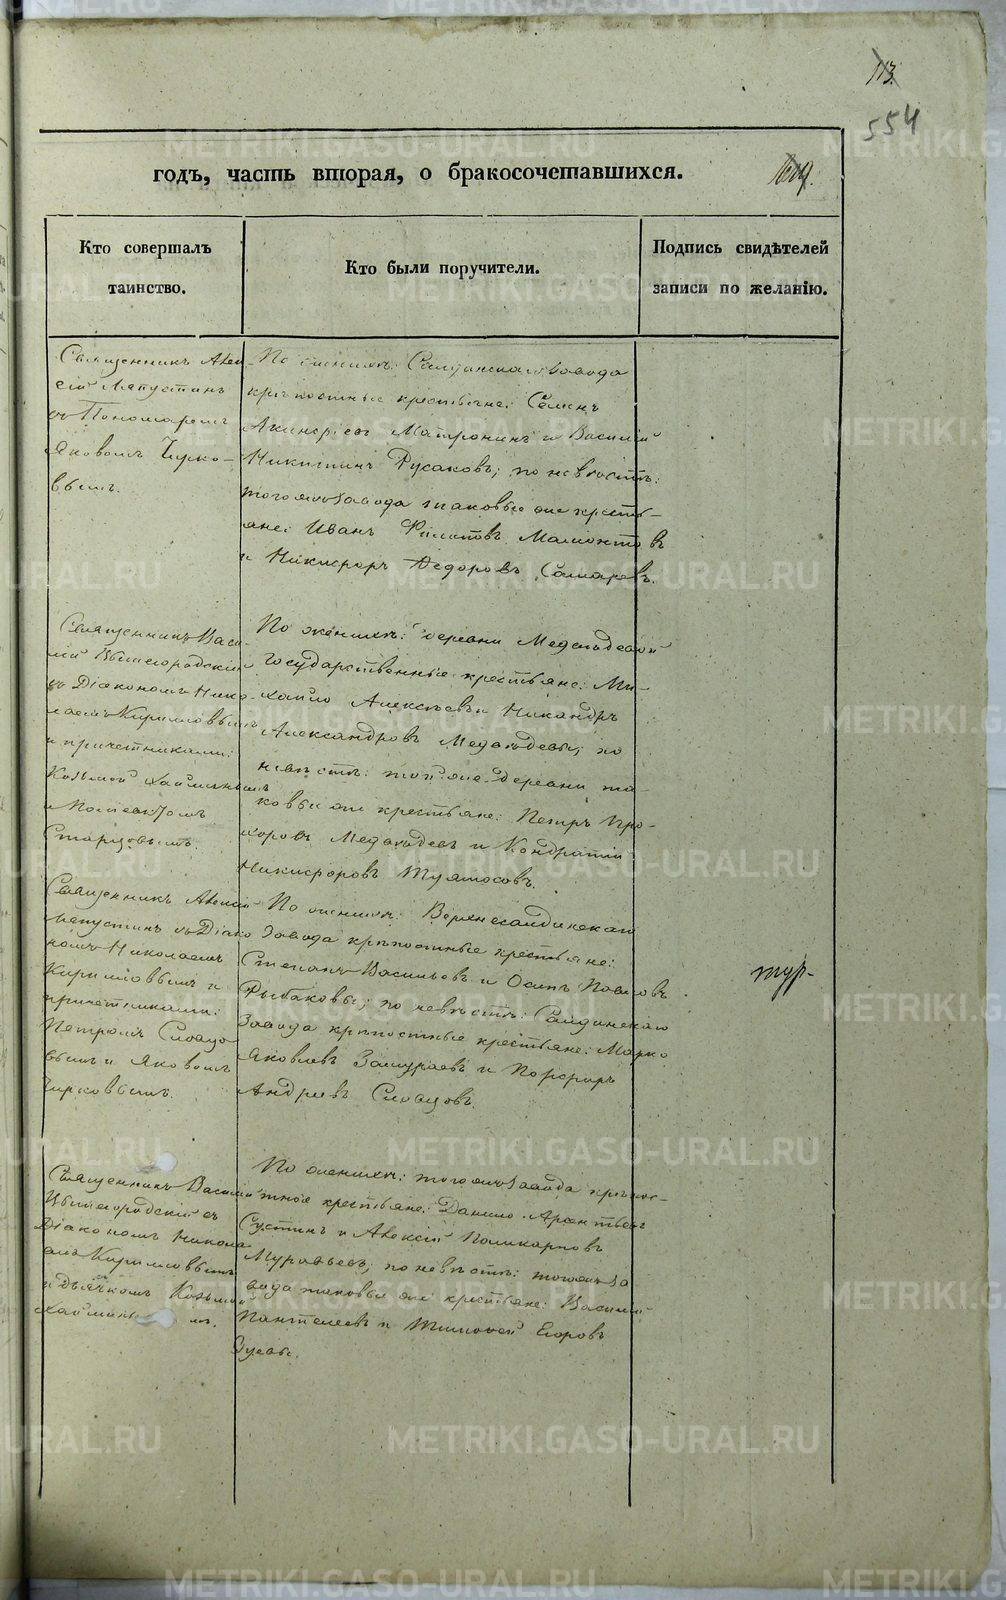 113.
554
годъ, часть вторая, о бракосочетавшихся.
Кто совершалъ
таинство.
Кто были поручители.
Подпись свидѣтелей
записи по желанію.
Священникъ Алек-
сій Мапустинъ
съ Пономаремъ
Яковомъ Чирко-
вымъ.
По женихѣ: Салдинскаго завода
крѣпостные крестьяне: Семенъ
Василій
Никитинъ Русаковъ; по невѣстѣ:
тогоже завода таковые же кресть-
яне: Иванъ Филатовъ Мамонтовъ
и Никифоръ Ѳедоровъ
Священникъ Васи-
лій Вышегородскій
съ Діакономъ Нико-
лаемъ Кирилловымъ
и причетниками:
Козьмой
и
Старцовымъ.
По женихѣ: деревни Медвѣдевой
государственные крестьяне: Ми-
хайло Алексѣевъ и Никандръ
Александровъ Медвѣдевы; по
невѣстѣ: той же деревни та-
ковые же крестьяне: Петръ Про-
хоровъ Медвѣдевъ и Кондратій
Никифоровъ
Священникъ Алексій
Мапустинъ съ Діако-
номъ Николаемъ
Кирилловымъ и
причетниками:
Петромъ Словцо-
вымъ и Яковомъ
Чирковымъ.
По женихѣ: Верхнесалдинскаго
Завода крѣпостные крестьяне:
Степанъ Васильевъ и Осипъ Павловъ
Рыбаковы; по невѣстѣ: Салдинскаго
Завода крѣпостные крестьяне: Марко
Яковлевъ Замураевъ и Порфиръ
Андреевъ Словцовъ.
Священникъ Василій
Вышегородскій съ
Діакономъ Никола-
емъ Кирилловымъ
и дьячкомъ Козьмой
По женихѣ: тогоже завода крѣпос-
тные крестьяне: Данило
Сустинъ и Алексій Поликарповъ
Муравьевъ; по невѣстѣ: тогоже за
вода таковые же крестьяне: Василій
Пантелеевъ и Тимофей Егоровъ
Зуевы.
METRIKI.GASO-URAL.RU